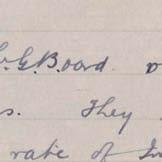 L.G.Board
s. They
rate of In